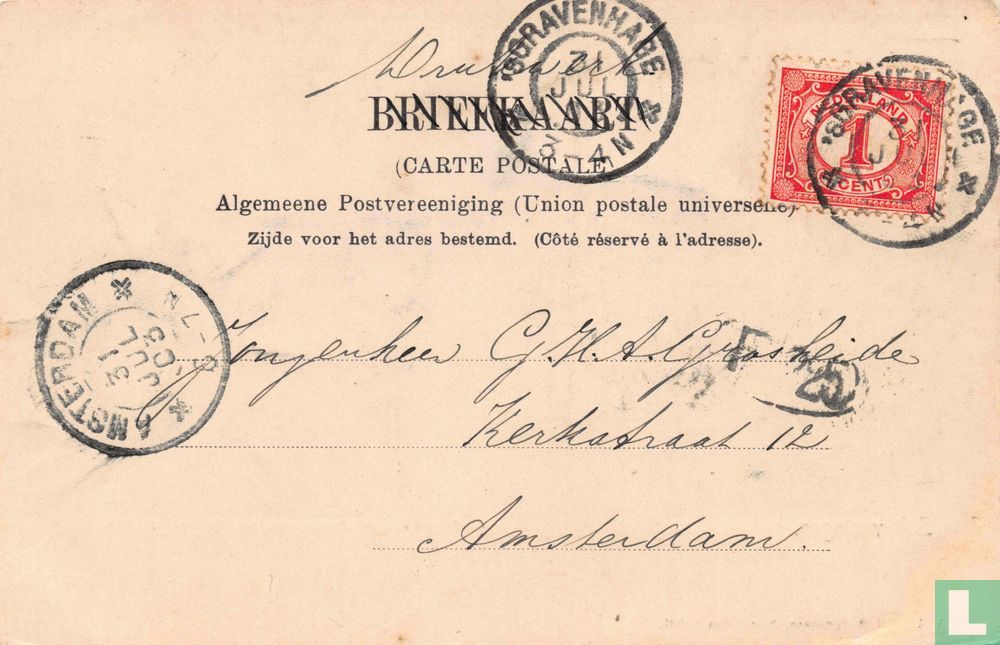 Drukwerk
BRIEFKAART
(CARTE POSTALE)
Algemeene Postvereeniging (Union postale universelle)
Zijde voor het adres bestemd. (Côté réservé à l'adresse).
'SGRAVENHAGE
31
JUL
3-4N
NEDERLAND
1
CENT
'SGRAVENHAGE
AMSTERDAM
31
JUL
03
6-7N
Jongenheer G.H.A. Grosheide
Kerkstraat 12
Amsterdam.
25
L